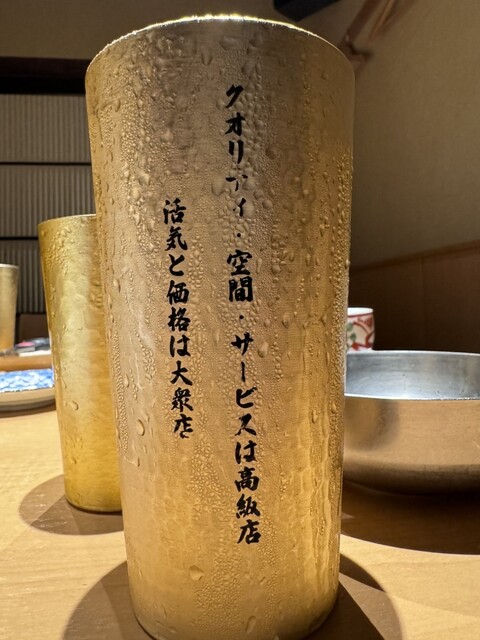 クオリティ・空間・サービスは高級店
活気と価格は大衆店